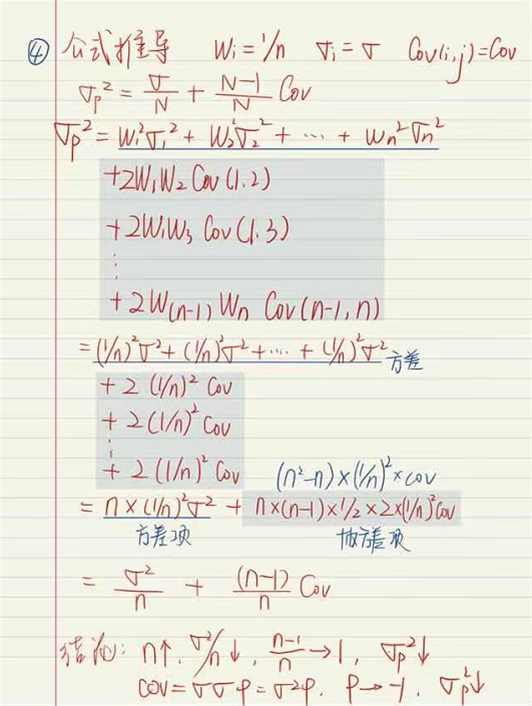 ④ 公式推导 Wi=1/n σi=σ Cov(i,j)=Cov
σp²=σ/N+N-1/N Cov
σp²=W₁²σ₁²+W₂²σ₂²+…+Wn²σn²
+2W₁W₂Cov(1.2)
+2W₁W₃Cov(1.3)
⋮
+2W(n-1)Wn Cov(n-1,n)
=(1/n)²σ²+(1/n)²σ²+…+(1/n)²σ² 方差
+2(1/n)²Cov
+2(1/n)²Cov
⋮
+2(1/n)²Cov (n²-n)×(1/n)²×cov
=n×(1/n)²σ²+n×(n-1)×1/2×2×(1/n)²Cov
方差项 协方差项
=σ²/n+(n-1)/n Cov
结论: n↑, σ²/n↓, n-1/n→1, σp²↓
COV=σσρ=σ²ρ, ρ→-1, σp²↓